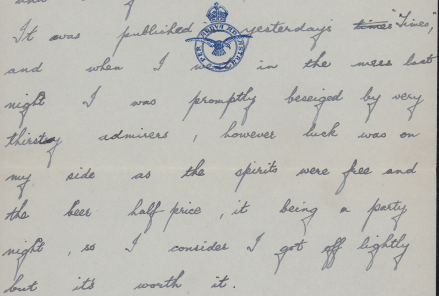 It was published yesterdays times "Times,"
PER ARDUA AD ASTRA
and when I we in the mess last
night I was promptly beseiged by very
thirsty admirers, however luck was on
my side as the spirits were free and
the beer half price, it being a party
night, so I consider I got off lightly
but it's worth it.